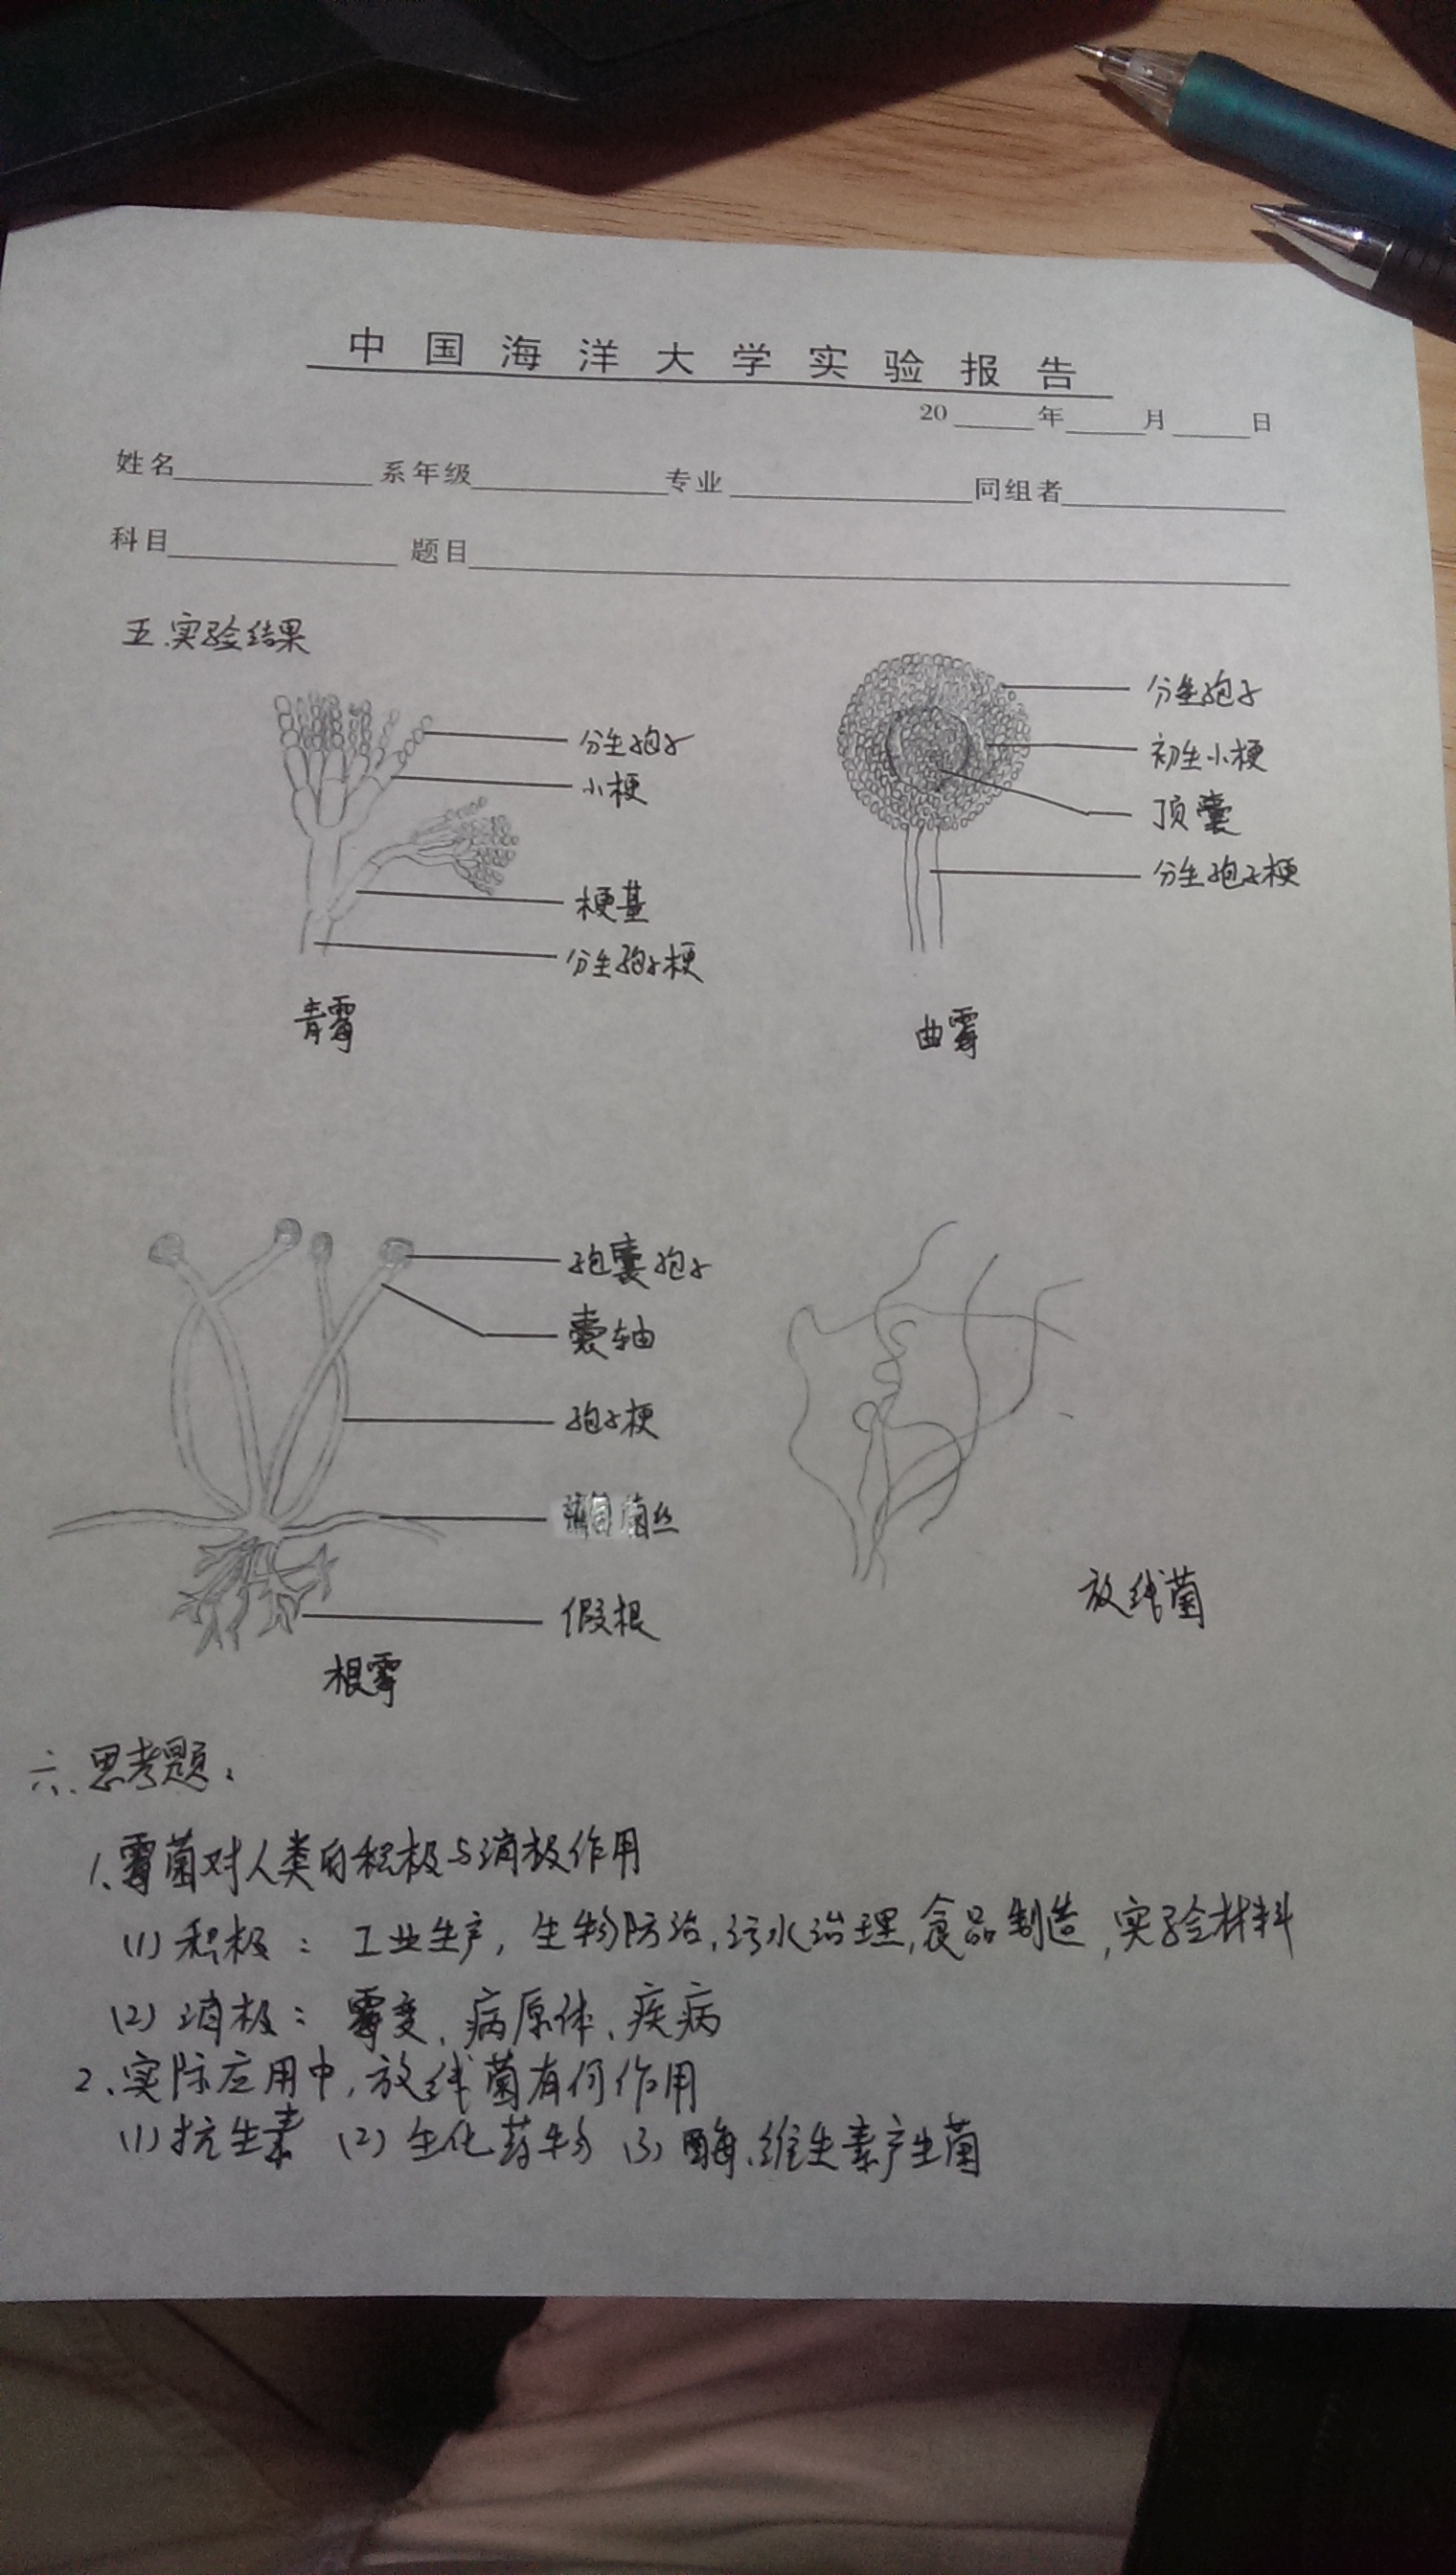 中国海洋大学实验报告
20 年 月 日
姓名 系年级 专业 同组者
科目 题目
五.实验结果
分生孢子
小梗
梗基
分生孢子梗
青霉
分生孢子
初生小梗
顶囊
分生孢子梗
曲霉
孢囊孢子
囊轴
孢子梗
匍匐菌丝
假根
根霉
放线菌
六、思考题:
1、霉菌对人类的积极与消极作用
(1)积极: 工业生产, 生物防治,污水治理,食品制造,实验材料
(2)消极: 霉变、病原体、疾病
2、实际应用中,放线菌有何作用
(1)抗生素 (2)生化药物 (3)酶、维生素产生菌